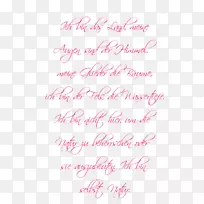 Ich bin das Land, meine
Augen sind der Himmel,
meine Glieder die Bäume,
ich bin der Fels, die Wassertiefe.
Ich bin nicht hier, um die
Natur zu beherrschen oder
sie auszubeuten. Ich bin
selbst Natur.